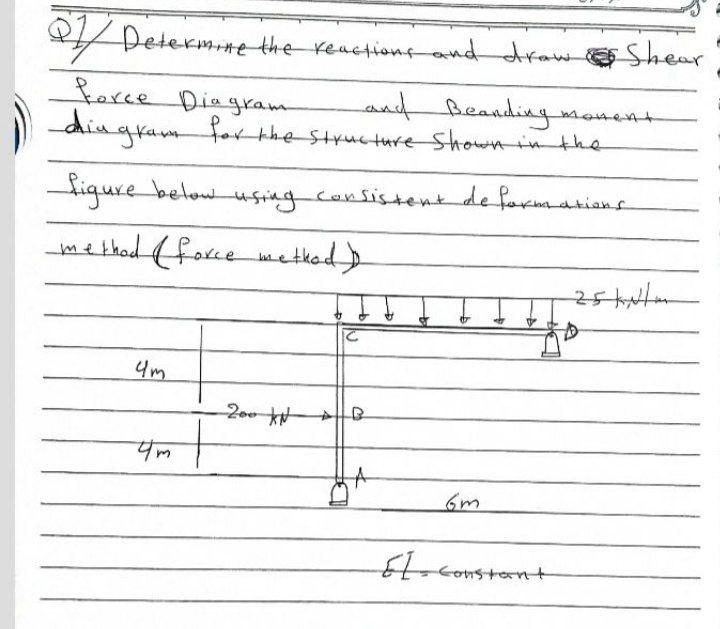 Q1/ Determine the reactions and draw Shear
force Diagram and Beanding monent
diagram for the structure shown in the
figure below using consistent deformations
method (force method)
25 kN/m
C
D
4m
200 kN
B
4m
A
6m
EI = constant